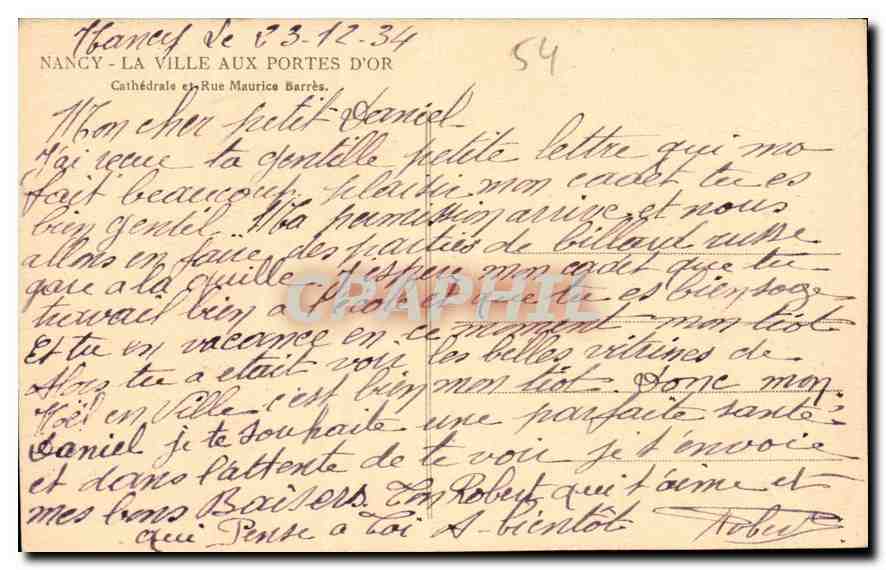 Nancy le 23-12-34
54
NANCY - LA VILLE AUX PORTES D'OR
Cathédrale et Rue Maurice Barrès.
Mon cher petit Daniel
J'ai reçue ta gentille petite lettre qui ma
fait beaucoup plaisir mon cadet tu es
bien gentil. Ma permission arrive et nous
allons en faire des parties de billard russe
gare a la quille. J'espère mon cadet que tu
travail bien a l'école et que tu es bien sage
Et tu en vacance en ce moment mon tiot
Alors tu a etait voir les belles vitrines de
Noël en Ville c'est bien mon tiot. Donc mon
Daniel je te souhaite une parfaite santé
et dans l'attente de te voir je t'envoie
mes bons Baisers. Ton Robert qui t'aime et
qui Pense a Toi A-bientôt Robert
CPAPHIL